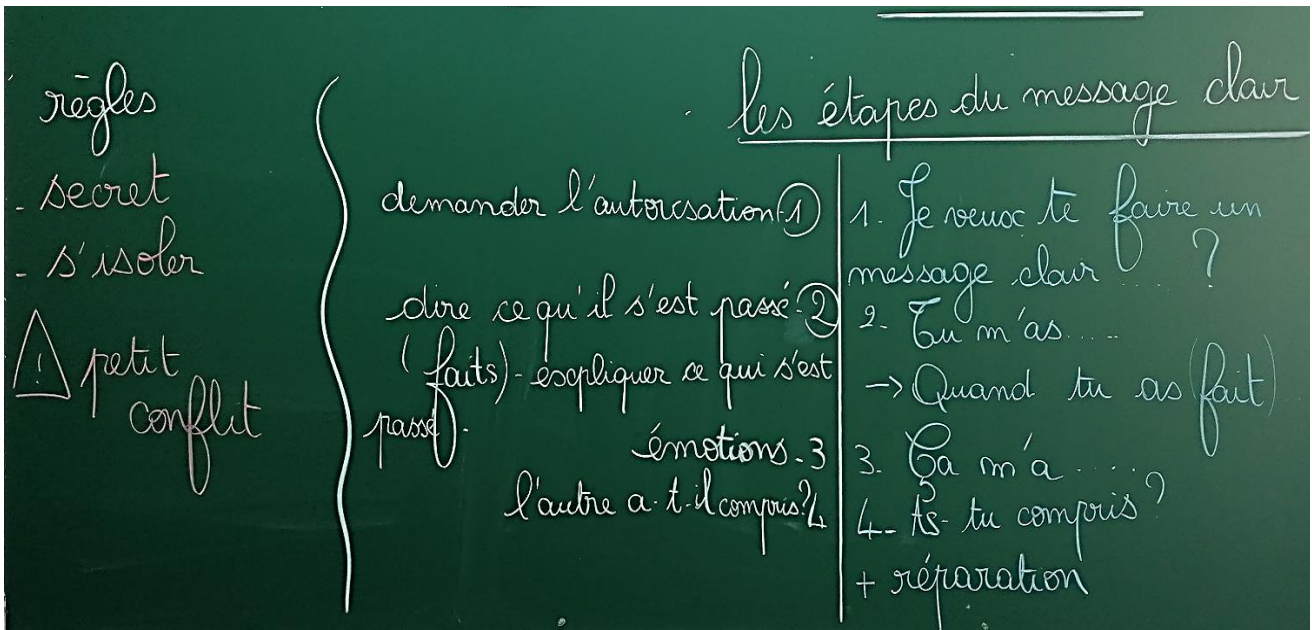 règles
- secret
- s'isoler
! petit
conflit
les étapes du message clair
demander l'autorisation-1
dire ce qu'il s'est passé-2
(faits)-expliquer ce qui s'est
passé).
émotions-3
l'autre a-t-il compris?4
1- Je veux te faire un
message clair ..... ?
2- Tu m'as.....
→ Quand tu as (fait)
3- Ça m'a .....
4- As-tu compris?
+ réparation